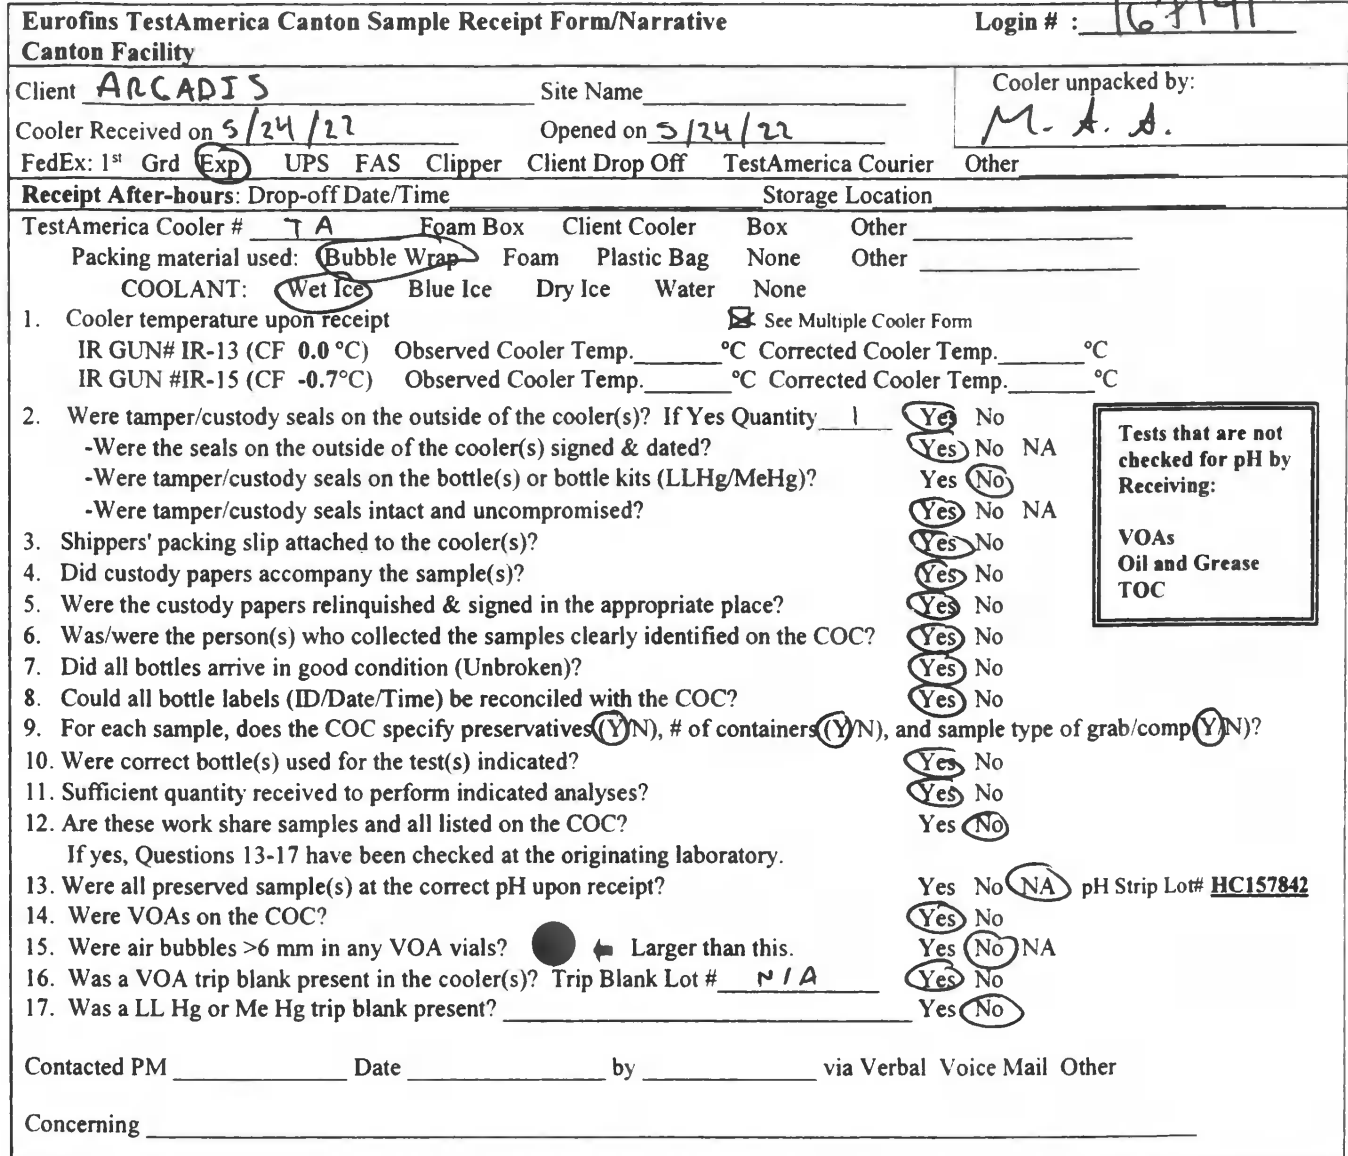 Eurofins TestAmerica Canton Sample Receipt Form/Narrative Login # : 167141
Canton Facility
Client ARCADIS Site Name Cooler unpacked by:
Cooler Received on 5/24/22 Opened on 5/24/22 M. A. A.
FedEx: 1st Grd Exp UPS FAS Clipper Client Drop Off TestAmerica Courier Other
Receipt After-hours: Drop-off Date/Time Storage Location
TestAmerica Cooler # TA Foam Box Client Cooler Box Other
Packing material used: Bubble Wrap Foam Plastic Bag None Other
COOLANT: Wet Ice Blue Ice Dry Ice Water None
1. Cooler temperature upon receipt See Multiple Cooler Form
IR GUN# IR-13 (CF 0.0 °C) Observed Cooler Temp. °C Corrected Cooler Temp. °C
IR GUN #IR-15 (CF -0.7°C) Observed Cooler Temp. °C Corrected Cooler Temp. °C
2. Were tamper/custody seals on the outside of the cooler(s)? If Yes Quantity 1 Yes No
-Were the seals on the outside of the cooler(s) signed & dated? Yes No NA
-Were tamper/custody seals on the bottle(s) or bottle kits (LLHg/MeHg)? Yes No
-Were tamper/custody seals intact and uncompromised? Yes No NA
Tests that are not
checked for pH by
Receiving:
VOAs
Oil and Grease
TOC
3. Shippers' packing slip attached to the cooler(s)? Yes No
4. Did custody papers accompany the sample(s)? Yes No
5. Were the custody papers relinquished & signed in the appropriate place? Yes No
6. Was/were the person(s) who collected the samples clearly identified on the COC? Yes No
7. Did all bottles arrive in good condition (Unbroken)? Yes No
8. Could all bottle labels (ID/Date/Time) be reconciled with the COC? Yes No
9. For each sample, does the COC specify preservatives (Y/N), # of containers (Y/N), and sample type of grab/comp (Y/N)?
10. Were correct bottle(s) used for the test(s) indicated? Yes No
11. Sufficient quantity received to perform indicated analyses? Yes No
12. Are these work share samples and all listed on the COC? Yes No
If yes, Questions 13-17 have been checked at the originating laboratory.
13. Were all preserved sample(s) at the correct pH upon receipt? Yes No NA pH Strip Lot# HC157842
14. Were VOAs on the COC? Yes No
15. Were air bubbles >6 mm in any VOA vials? Larger than this. Yes No NA
16. Was a VOA trip blank present in the cooler(s)? Trip Blank Lot # N/A Yes No
17. Was a LL Hg or Me Hg trip blank present? Yes No
Contacted PM Date by via Verbal Voice Mail Other
Concerning